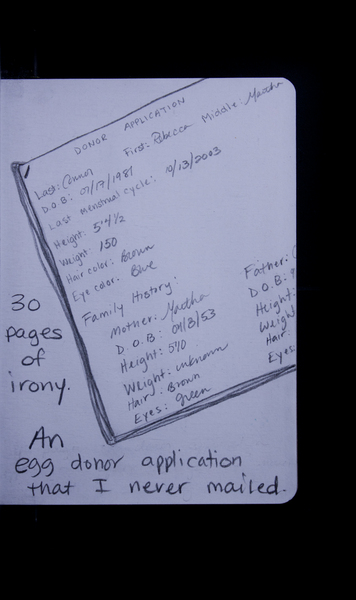 DONOR APPLICATION
Last: Connor First: Rebecca Middle: Martha
D.O.B: 07/17/1981
Last menstrual cycle: 10/13/2003
Height: 5'4 1/2
Weight: 150
Hair color: Brown
Eye color: Blue
Family History:
Mother: Martha
D.O.B: 04/8/53
Height: 5'10
Weight: unknown
Hair: Brown
Eyes: green
Father:
D.O.B:
Height:
Weight
Hair:
Eyes:
30
pages
of
irony.
An
egg donor application
that I never mailed.